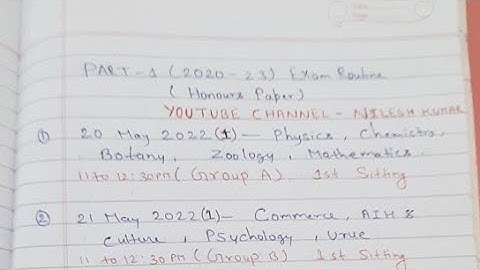 PART-1 (2020-23) Exam Routine
(Honours Paper)
YOUTUBE CHANNEL - NILESH KUMAR
① 20 May 2022(1)— Physics, Chemistry,
Botany, Zoology, Mathematics.
11 to 12:30PM (Group A) 1st Sitting
② 21 May 2022(1)— Commerce, AIH &
Culture, Psychology, Urdu
11 to 12:30 PM (Group B) 1st Sitting